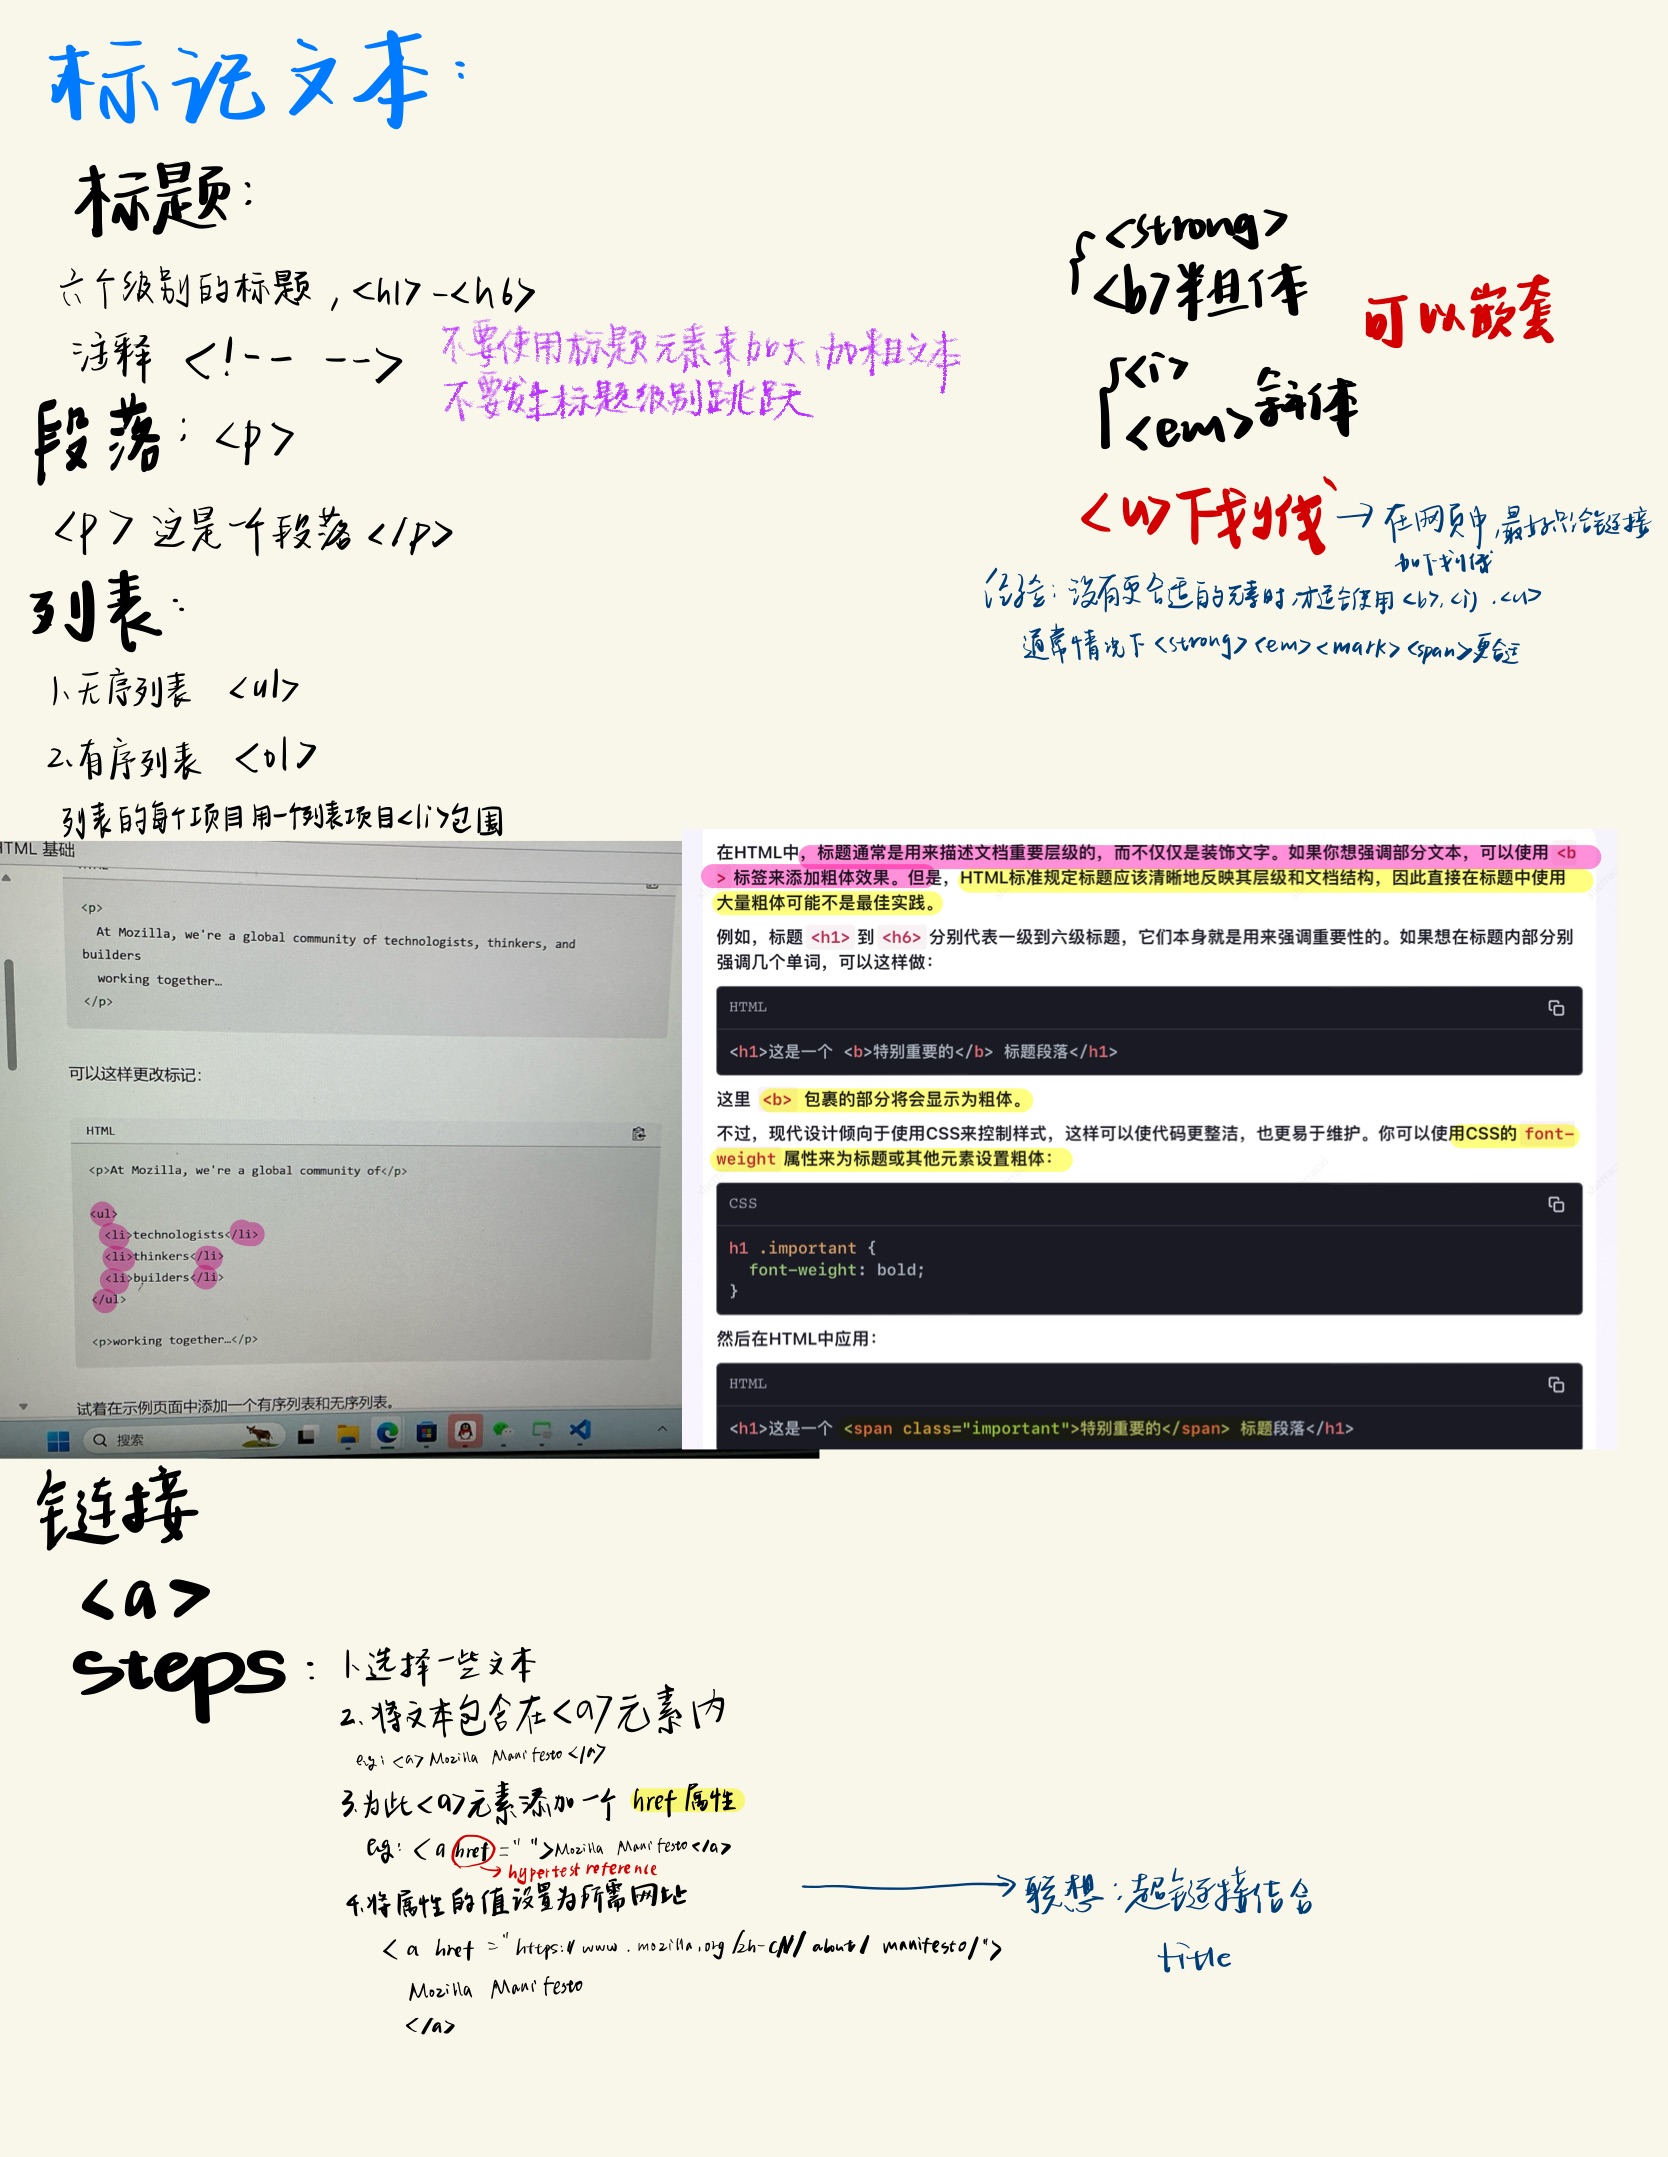 标记文本：
标题：
六个级别的标题，<h1>-<h6>
注释 <!-- -->
不要使用标题元素来加大、加粗文本
不要发生标题级别跳跃
段落：<p>
<p>这是一个段落</p>
列表：
1、无序列表 <ul>
2、有序列表 <ol>
列表的每个项目用一个列表项目<li>包围
<strong>
<b>粗体
可以嵌套
<i>
<em>斜体
<u>下划线
→在网页中,最好只给链接
加下划线
经验：没有更合适的元素时,才适合使用<b>,<i>.<u>
通常情况下<strong><em><mark><span>更合适
HTML 基础
<p>
At Mozilla, we're a global community of technologists, thinkers, and
builders
working together…
</p>
可以这样更改标记：
HTML
<p>At Mozilla, we're a global community of</p>
<ul>
<li>technologists</li>
<li>thinkers</li>
<li>builders</li>
</ul>
<p>working together…</p>
试着在示例页面中添加一个有序列表和无序列表。
搜索
在HTML中，标题通常是用来描述文档重要层级的，而不仅仅是装饰文字。如果你想强调部分文本，可以使用 <b
> 标签来添加粗体效果。但是，HTML标准规定标题应该清晰地反映其层级和文档结构，因此直接在标题中使用
大量粗体可能不是最佳实践。
例如，标题 <h1> 到 <h6> 分别代表一级到六级标题，它们本身就是用来强调重要性的。如果想在标题内部分别
强调几个单词，可以这样做：
HTML
<h1>这是一个 <b>特别重要的</b> 标题段落</h1>
这里 <b> 包裹的部分将会显示为粗体。
不过，现代设计倾向于使用CSS来控制样式，这样可以使代码更整洁，也更易于维护。你可以使用CSS的 font-
weight 属性来为标题或其他元素设置粗体：
CSS
h1 .important {
font-weight: bold;
}
然后在HTML中应用：
HTML
<h1>这是一个 <span class="important">特别重要的</span> 标题段落</h1>
链接
<a>
steps：
1、选择一些文本
2、将文本包含在<a>元素内
eg: <a>Mozilla Manifesto</a>
3.为此<a>元素添加一个 href属性
eg: <a href=" ">Mozilla Manifesto</a>
→ hypertest reference
4.将属性的值设置为所需网址
→联想：超链接结合
title
<a href="https://www.mozilla.org/zh-CN/about/manifesto/">
Mozilla Manifesto
</a>